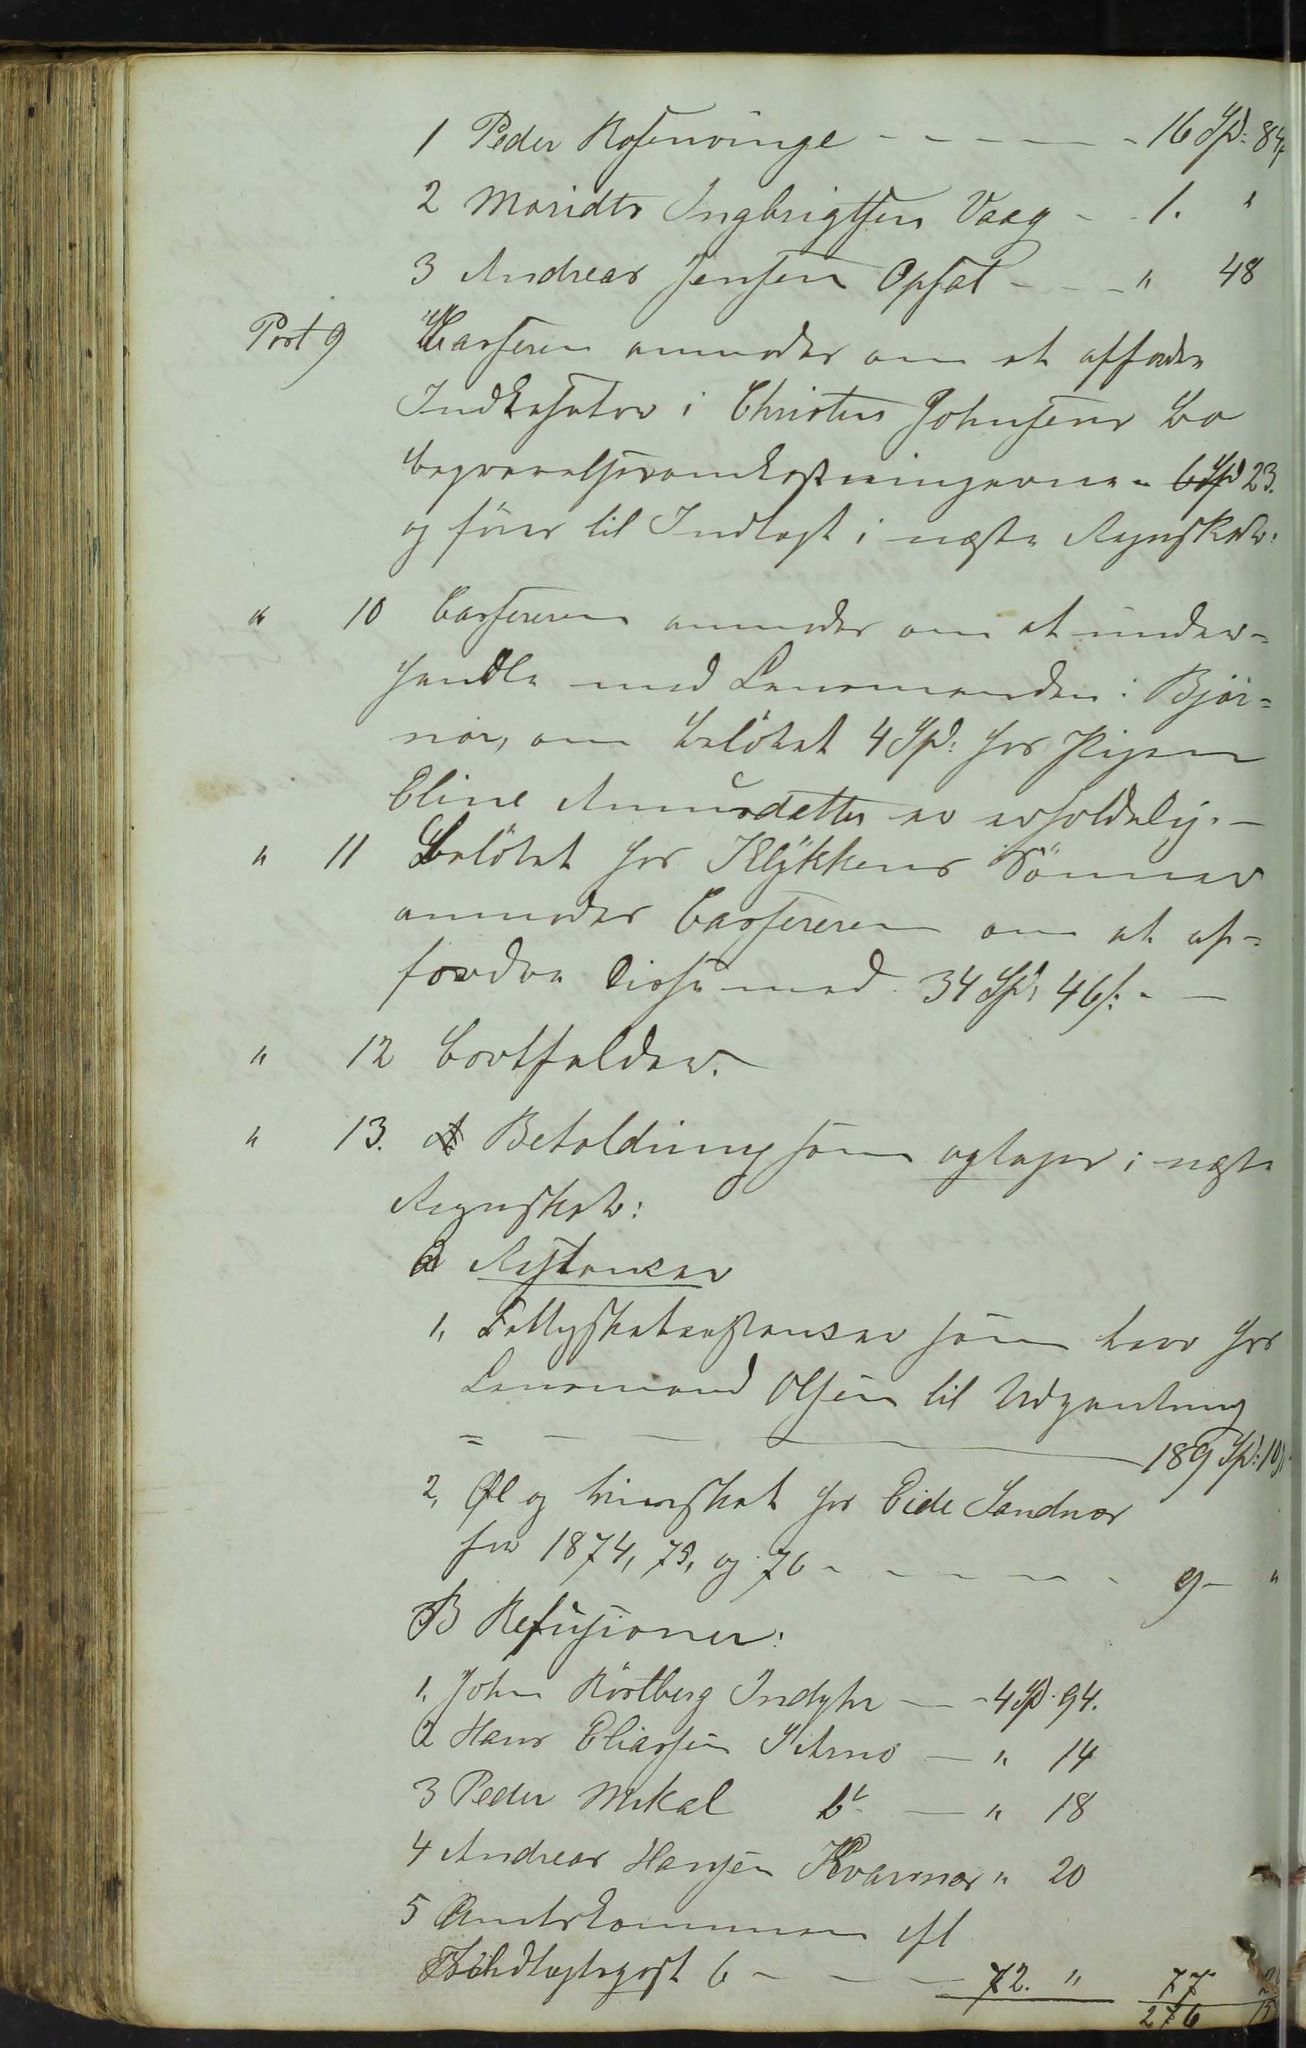 1 Peder Rosenvinge - - - - - 16 Spd. 84
2 Moridts Ingbrigtsen Vaag - - 1. "
3 Andreas Jensen Opsal - - - " 48
Post 9 Casseren anmodes om at affordre
Indkasator i Christen Johnsens Bo
begravelsesomkostningerne - 6 Spd 23.
og föres til Indtægt i næste Regnskab:
" 10 Cassereren anmodes om at under-
handle med Lensmanden i Bjør-
nør, om belöbet 4 Spd: for Pigen
Eline Amundsdatter er erholdelig. -
" 11 Belöbet for Klykkens Sönner
anmodes Cassereren om at af-
fordre disse med 34 Spd, 46 s: - -
" 12 bortfalder.
" 13. Beholdning som optages i næste
Regnskab:
a Restanser
1, Fattigskatrestanser som bero hos
Lensmand Olsen til Udpantning
= - - - 189 Spd:
2, Øl og vinskat for Eide Sandnes
for 1874, 75, og 76 - - - - - - 9 - "
B Refusioner:
1, John Röstberg Indyhr - - 4 Spd. 94.
2 Hans Eliassen Sitrnö - " 14
3 Peder Mikal Do - " 18
4 Andreas Hansen Kvarnes " 20
5 Amtskommunen ifl
Indtægtspost 6 - - - - 72. " 77
276